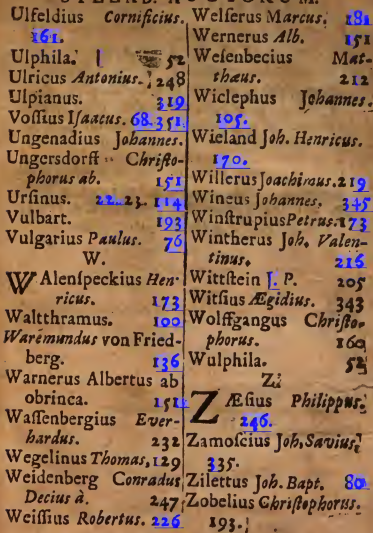 Ulfeldius Cornificius.
161.
Ulphila. 52
Ulricus Antonius. 248
Ulpianus. 319
Vossius Isaacus. 68. 351.
Ungenadius Johannes.
Ungersdorff Christo-
phorus ab. 151
Ursinus. 22. 23. 114
Vulbart. 193
Vulgarius Paulus. 76
W.
WAlenspeckius Hen-
ricus. 173
Waltthramus. 100
Waremundus von Fried-
berg. 136
Warnerus Albertus ab
obrinca. 151
Wassenbergius Ever-
hardus. 232
Wegelinus Thomas, 129
Weidenberg Conradus
Decius à. 247
Weissius Robertus. 226
Welserus Marcus. 181
Wernerus Alb. 151
Wesenbecius Mat-
thæus. 212
Wiclephus Johannes.
105.
Wieland Joh. Henricus.
170.
Willerus Joachimus. 219
Wineus Johannes. 345
Winstrupius Petrus. 173
Wintherus Joh. Valen-
tinus. 216
Wittstein J. P. 205
Witsius Ægidius. 343
Wolffgangus Christo-
phorus. 160
Wulphila. 52
Z.
ZÆsius Philippus.
246.
Zamoscius Joh. Savius,
335.
Zilettus Joh. Bapt. 80
Zobelius Christophorus.
193.